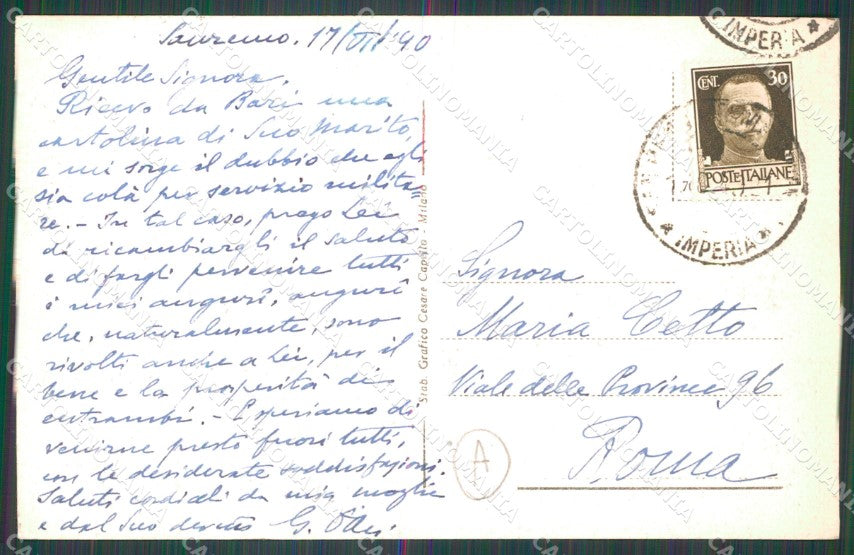 Sanremo. 17/VII/40
Gentile Signora,
Ricevo da Bari una
cartolina di Suo Marito,
e mi sorge il dubbio che egli
sia colà per servizio milita-
re. - In tal caso, prego Lei
di ricambiargli il saluto
e di fargli pervenire tutti
i miei auguri, auguri
che, naturalmente, sono
rivolti anche a Lei, per il
bene e la prosperità di
entrambi. - Speriamo di
venirne presto fuori tutti,
con le desiderate soddisfazioni.
Saluti cordiali da mia moglie
e dal Suo devoto G.
Stab. Grafico Cesare Capello - Milano
IMPERIA
CENT. 30
POSTE ITALIANE
IMPERIA
Signora
Maria Cetto
Viale delle Provincie 96
Roma
A
CARTOLINOMANIA